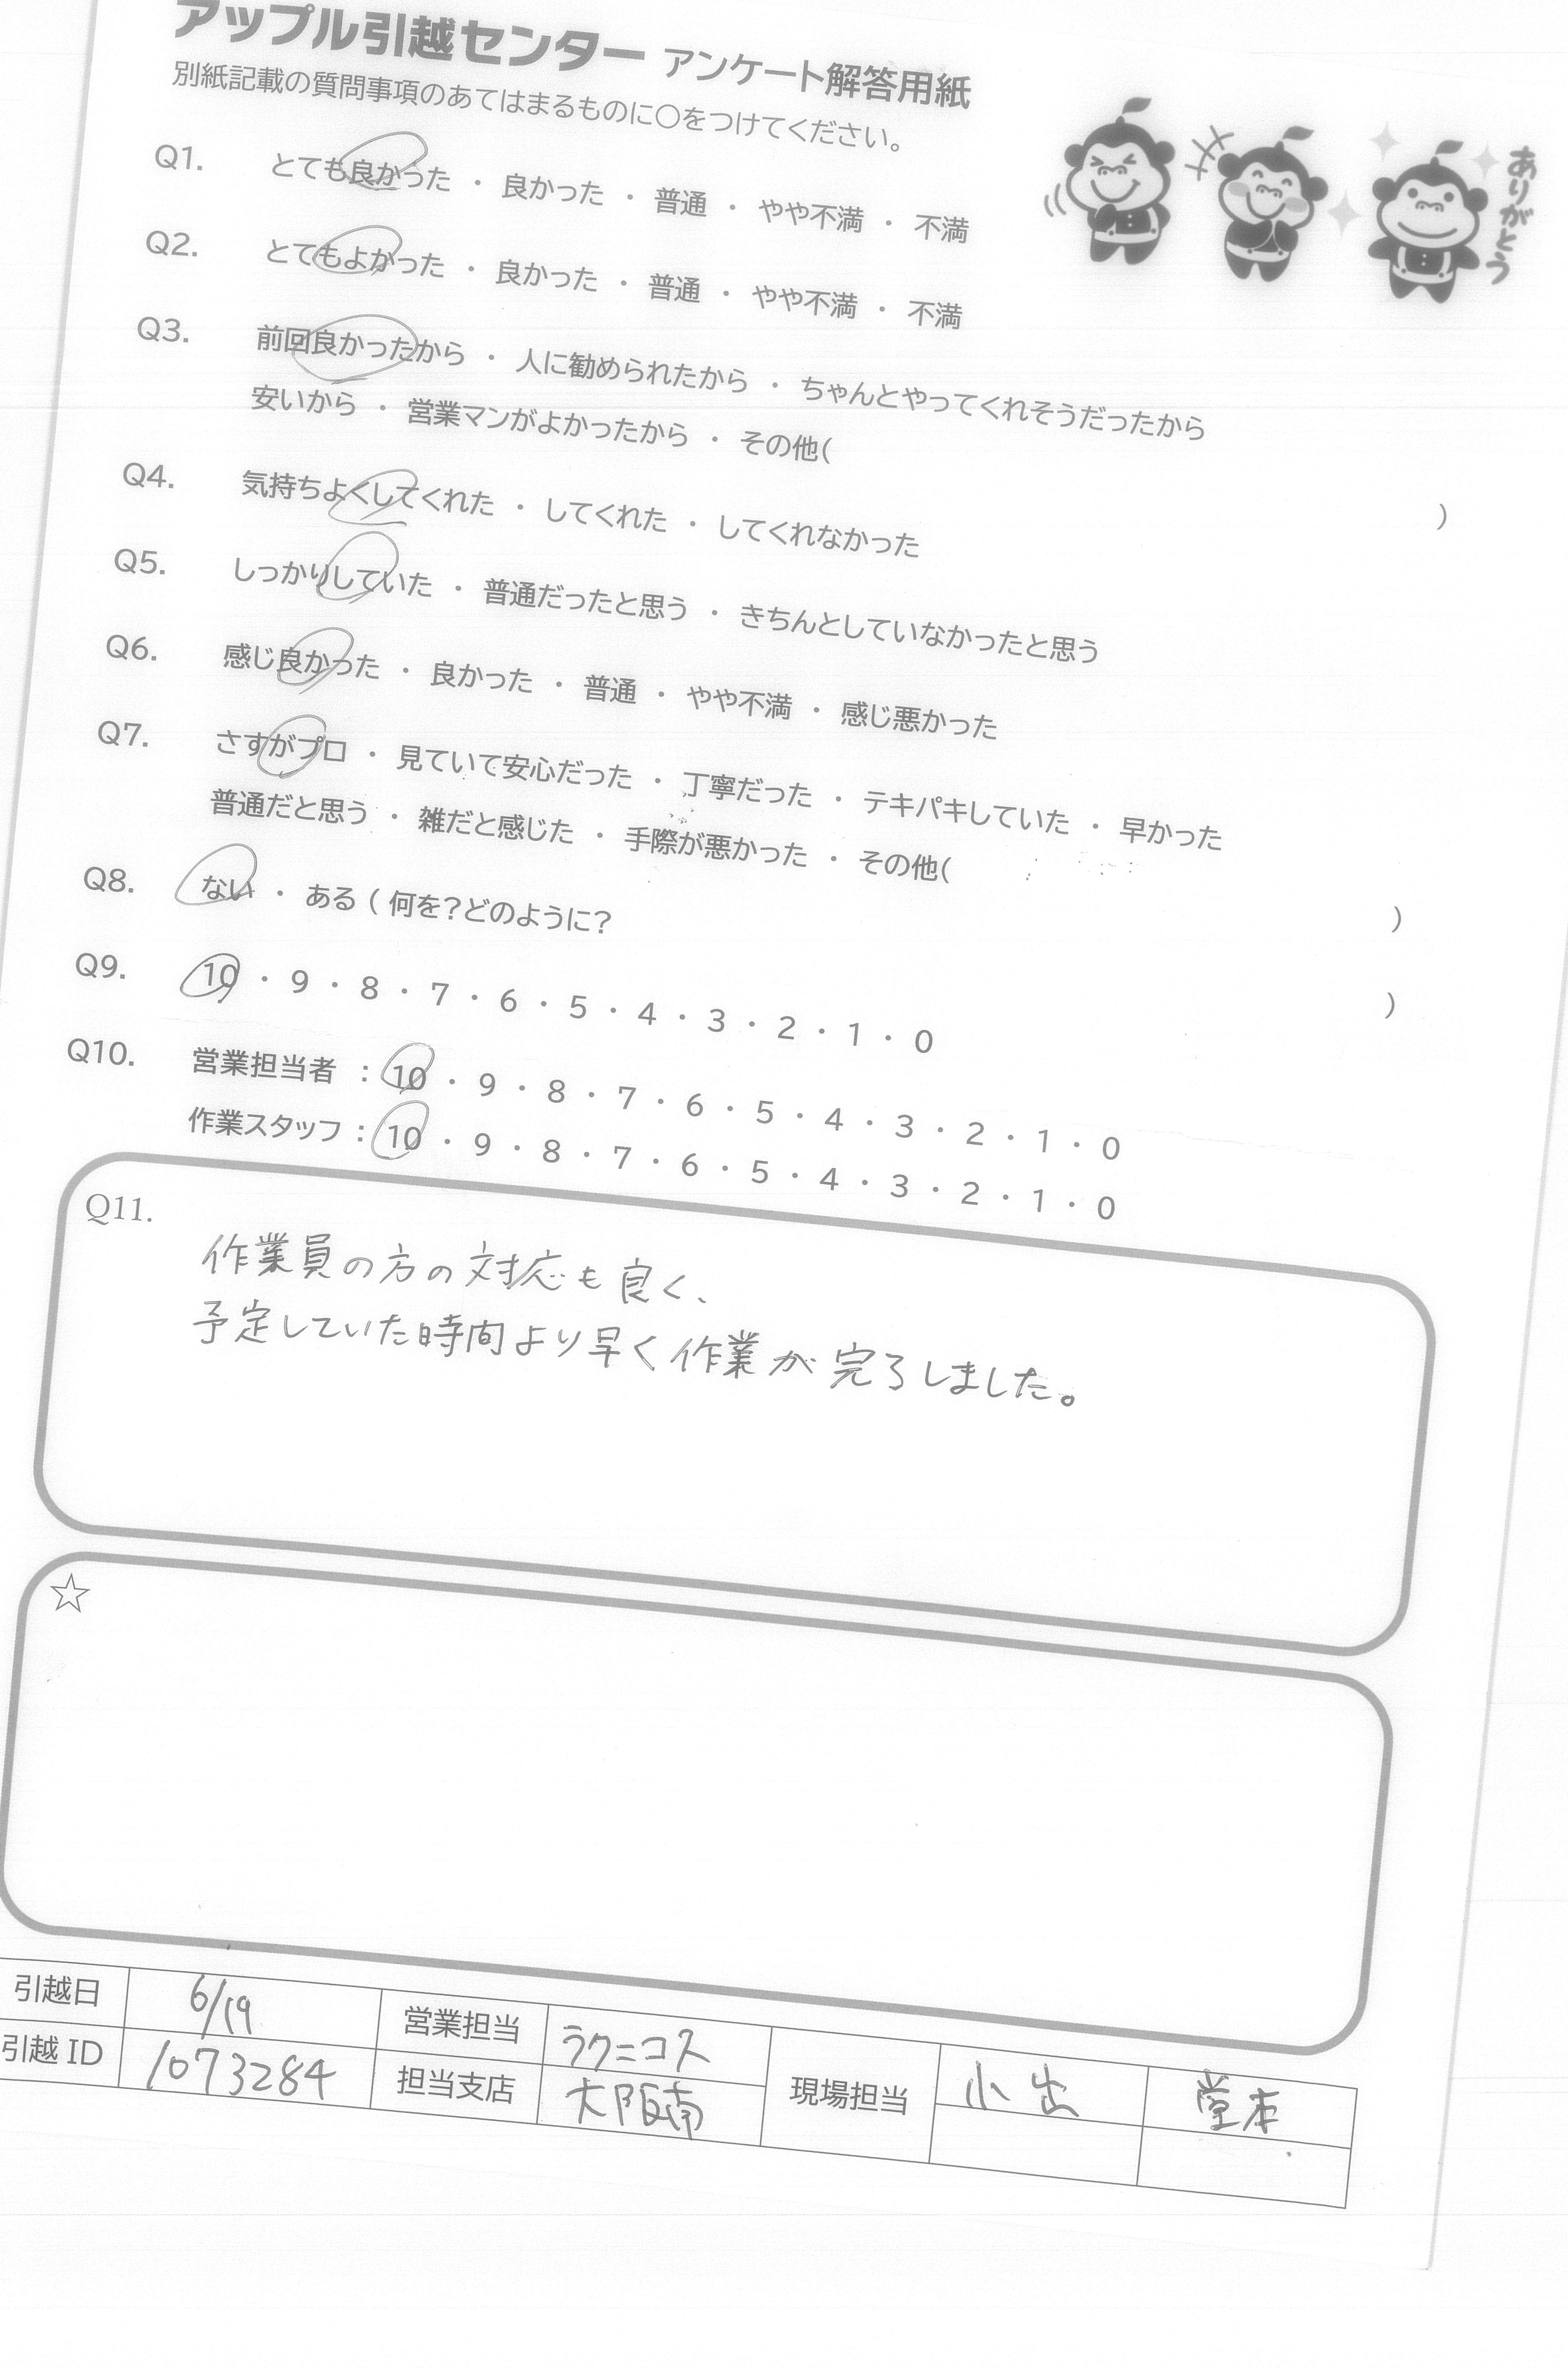 アップル引越センター アンケート解答用紙
別紙記載の質問事項のあてはまるものに○をつけてください。
ありがとう
Q1. とても良かった ・ 良かった ・ 普通 ・ やや不満 ・ 不満
Q2. とてもよかった ・ 良かった ・ 普通 ・ やや不満 ・ 不満
Q3. 前回良かったから ・ 人に勧められたから ・ ちゃんとやってくれそうだったから
安いから ・ 営業マンがよかったから ・ その他( )
Q4. 気持ちよくしてくれた ・ してくれた ・ してくれなかった
Q5. しっかりしていた ・ 普通だったと思う ・ きちんとしていなかったと思う
Q6. 感じ良かった ・ 良かった ・ 普通 ・ やや不満 ・ 感じ悪かった
Q7. さすがプロ ・ 見ていて安心だった ・ 丁寧だった ・ テキパキしていた ・ 早かった
普通だと思う ・ 雑だと感じた ・ 手際が悪かった ・ その他( )
Q8. ない ・ ある ( 何を?どのように? )
Q9. 10 ・ 9 ・ 8 ・ 7 ・ 6 ・ 5 ・ 4 ・ 3 ・ 2 ・ 1 ・ 0
Q10. 営業担当者 : 10 ・ 9 ・ 8 ・ 7 ・ 6 ・ 5 ・ 4 ・ 3 ・ 2 ・ 1 ・ 0
作業スタッフ : 10 ・ 9 ・ 8 ・ 7 ・ 6 ・ 5 ・ 4 ・ 3 ・ 2 ・ 1 ・ 0
Q11.
作業員の方の対応も良く、
予定していた時間より早く作業が完了しました。
☆
引越日 6/19 営業担当 ラクニコス 現場担当 小出 堂本
引越 ID 1073284 担当支店 大阪南